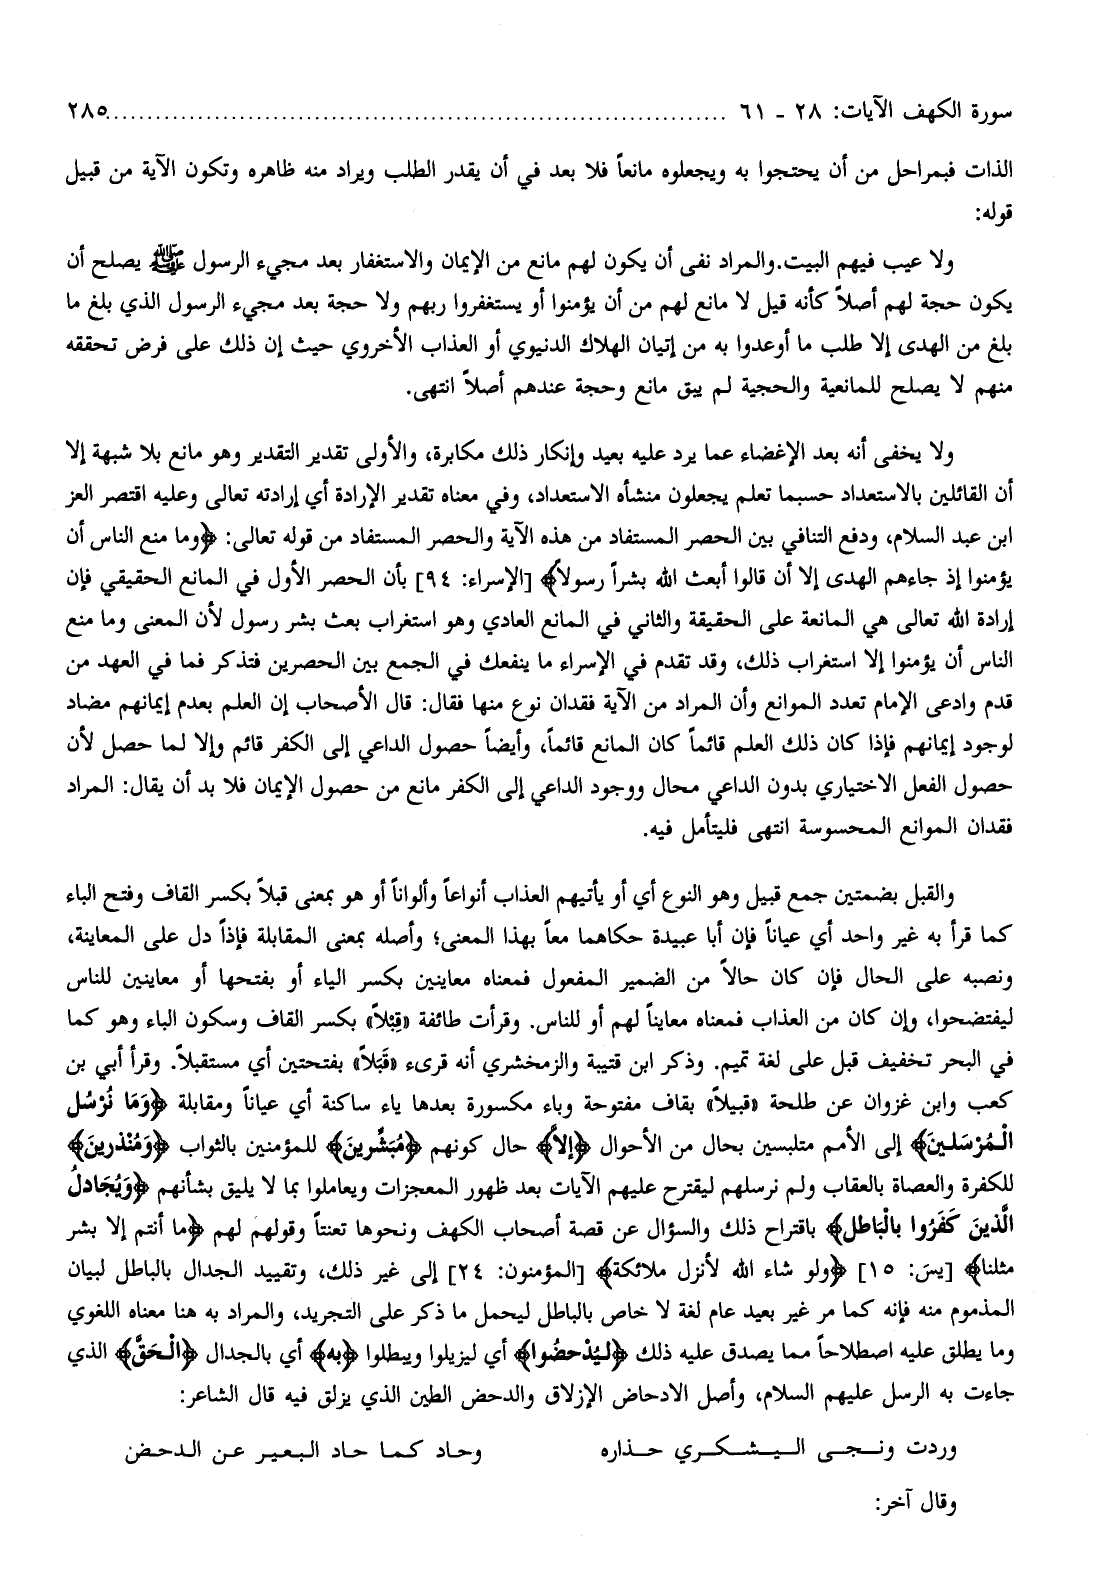 سورة الكهف الآيات: ٢٨ ـ ٦١ .......................................................................... ٢٨٥
الذات فبمراحل من أن يحتجوا به ويجعلوه مانعاً فلا بعد في أن يقدر الطلب ويراد منه ظاهره وتكون الآية من قبيل
قوله:
ولا عيب فيهم البيت.والمراد نفى أن يكون لهم مانع من الإيمان والاستغفار بعد مجيء الرسول ﷺ يصلح أن
يكون حجة لهم أصلاً كأنه قيل لا مانع لهم من أن يؤمنوا أو يستغفروا ربهم ولا حجة بعد مجيء الرسول الذي بلغ ما
بلغ من الهدى إلا طلب ما أوعدوا به من إتيان الهلاك الدنيوي أو العذاب الأخروي حيث إن ذلك على فرض تحققه
منهم لا يصلح للمانعية والحجية لم يبق مانع وحجة عندهم أصلاً انتهى.
ولا يخفى أنه بعد الإغضاء عما يرد عليه بعيد وإنكار ذلك مكابرة، والأولى تقدير التقدير وهو مانع بلا شبهة إلا
أن القائلين بالاستعداد حسبما تعلم يجعلون منشأه الاستعداد، وفي معناه تقدير الإرادة أي إرادته تعالى وعليه اقتصر العز
ابن عبد السلام، ودفع التنافي بين الحصر المستفاد من هذه الآية والحصر المستفاد من قوله تعالى: ﴿وما منع الناس أن
يؤمنوا إذ جاءهم الهدى إلا أن قالوا أبعث الله بشراً رسولاً﴾ [الإسراء: ٩٤] بأن الحصر الأول في المانع الحقيقي فإن
إرادة الله تعالى هي المانعة على الحقيقة والثاني في المانع العادي وهو استغراب بعث بشر رسول لأن المعنى وما منع
الناس أن يؤمنوا إلا استغراب ذلك، وقد تقدم في الإسراء ما ينفعك في الجمع بين الحصرين فتذكر فما في العهد من
قدم وادعى الإمام تعدد الموانع وأن المراد من الآية فقدان نوع منها فقال: قال الأصحاب إن العلم بعدم إيمانهم مضاد
لوجود إيمانهم فإذا كان ذلك العلم قائماً كان المانع قائماً، وأيضاً حصول الداعي إلى الكفر قائم وإلا لما حصل لأن
حصول الفعل الاختياري بدون الداعي محال ووجود الداعي إلى الكفر مانع من حصول الإيمان فلا بد أن يقال: المراد
فقدان الموانع المحسوسة انتهى فليتأمل فيه.
والقبل بضمتين جمع قبيل وهو النوع أي أو يأتيهم العذاب أنواعاً وألواناً أو هو بمعنى قبلاً بكسر القاف وفتح الباء
كما قرأ به غير واحد أي عياناً فإن أبا عبيدة حكاهما معاً بهذا المعنى؛ وأصله بمعنى المقابلة فإذاً دل على المعاينة،
ونصبه على الحال فإن كان حالاً من الضمير المفعول فمعناه معاينين بكسر الياء أو بفتحها أو معاينين للناس
ليفتضحوا، وإن كان من العذاب فمعناه معايناً لهم أو للناس. وقرأت طائفة «قِبْلاً» بكسر القاف وسكون الباء وهو كما
في البحر تخفيف قبل على لغة تميم. وذكر ابن قتيبة والزمخشري أنه قرىء «قَبَلاً» بفتحتين أي مستقبلاً. وقرأ أبي بن
كعب وابن غزوان عن طلحة «قبيلاً» بقاف مفتوحة وباء مكسورة بعدها ياء ساكنة أي عياناً ومقابلة ﴿وَمَا نُرْسُل
الْمُرْسَلينَ﴾ إلى الأمم متلبسين بحال من الأحوال ﴿إلاَّ﴾ حال كونهم ﴿مُبَشِّرينَ﴾ للمؤمنين بالثواب ﴿وَمُنْذرينَ﴾
للكفرة والعصاة بالعقاب ولم نرسلهم ليقترح عليهم الآيات بعد ظهور المعجزات ويعاملوا بما لا يليق بشأنهم ﴿وَيُجَادلُ
الَّذينَ كَفَرُوا بالْبَاطل﴾ باقتراح ذلك والسؤال عن قصة أصحاب الكهف ونحوها تعنتاً وقولهم لهم ﴿ما أنتم إلا بشر
مثلنا﴾ [يسَ: ١٥] ﴿ولو شاء الله لأنزل ملائكة﴾ [المؤمنون: ٢٤] إلى غير ذلك، وتقييد الجدال بالباطل لبيان
المذموم منه فإنه كما مر غير بعيد عام لغة لا خاص بالباطل ليحمل ما ذكر على التجريد، والمراد به هنا معناه اللغوي
وما يطلق عليه اصطلاحاً مما يصدق عليه ذلك ﴿ليُدْحضُوا﴾ أي ليزيلوا ويبطلوا ﴿به﴾ أي بالجدال ﴿الْحَقَّ﴾ الذي
جاءت به الرسل عليهم السلام، وأصل الادحاض الإزلاق والدحض الطين الذي يزلق فيه قال الشاعر:
وردت ونجى اليشكري حذاره وحاد كما حاد البعير عن الدحض
وقال آخر: